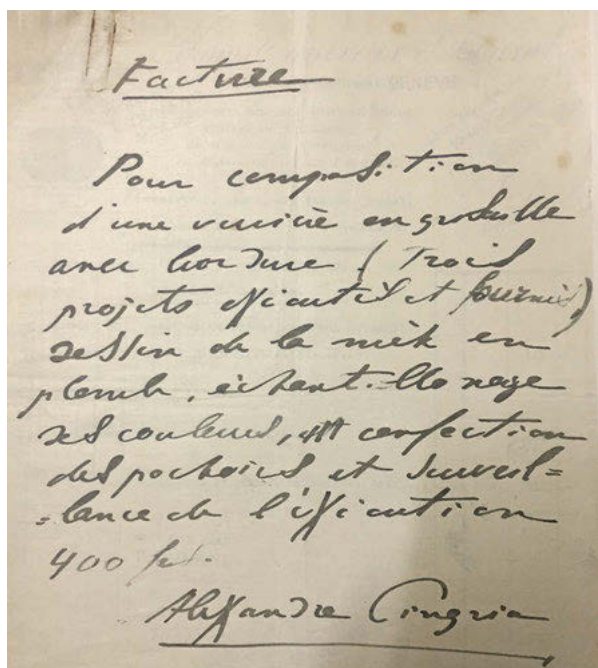 Facture
Pour composition
d'une verrière en grisaille
avec bordure (Trois
projets exécutés et fournis)
dessin de la mise en
plomb, échantillonage
des couleurs, confection
des pochoirs et surveil=
=lance de l'exécution
400 frs.
Alexandre Cingria